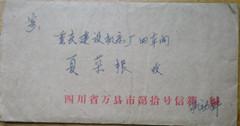 重庆建设机床厂四车间
夏荣根 收
四川省万县市第拾号信箱